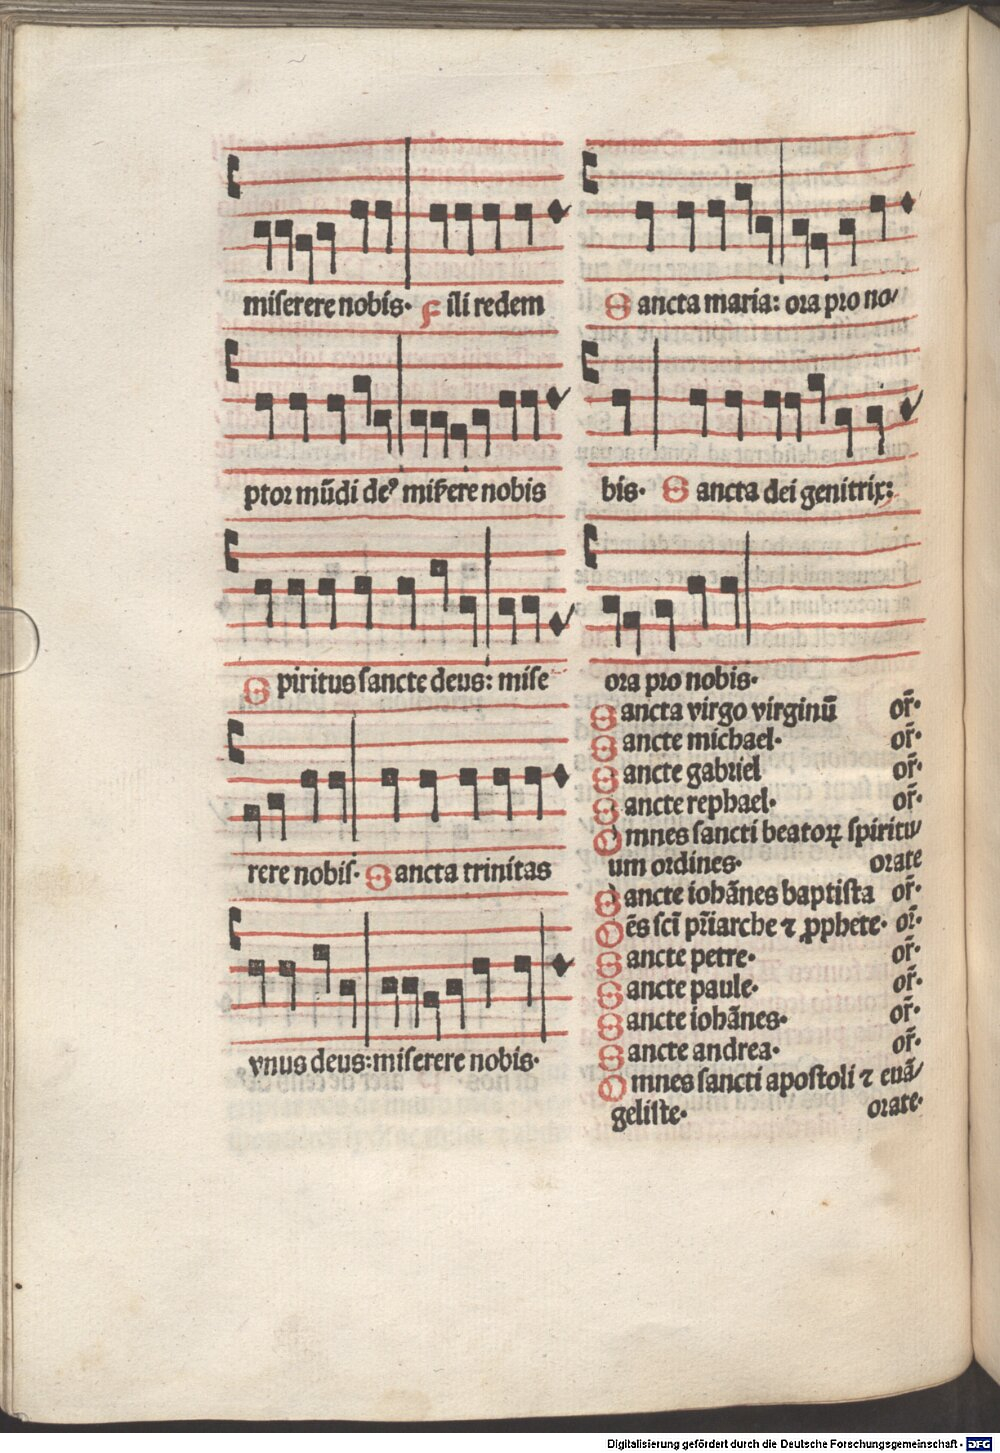 miserere nobis. Fili redem
ptor mūdi deꝰ mis̄ere nobis
Spiritus sancte deus: mise
rere nobis. Sancta trinitas
vnus deus: miserere nobis.
Sancta maria: ora pro no/
bis. Sancta dei genitrix:
ora pro nobis.
Sancta virgo virginū or̄.
Sancte michael. or̄.
Sancte gabriel or̄.
Sancte rephael. or̄.
Omnes sancti beatoꝝ spiritu/
um ordines. orate
Sancte iohānes baptista or̄.
Oēs scī pr̄iarche ⁊ ꝓphete. or̄.
Sancte petre. or̄.
Sancte paule. or̄.
Sancte iohānes. or̄.
Sancte andrea. or̄.
Omnes sancti apostoli ⁊ euā/
geliste. orate.
Digitalisierung gefördert durch die Deutsche Forschungsgemeinschaft - DFG